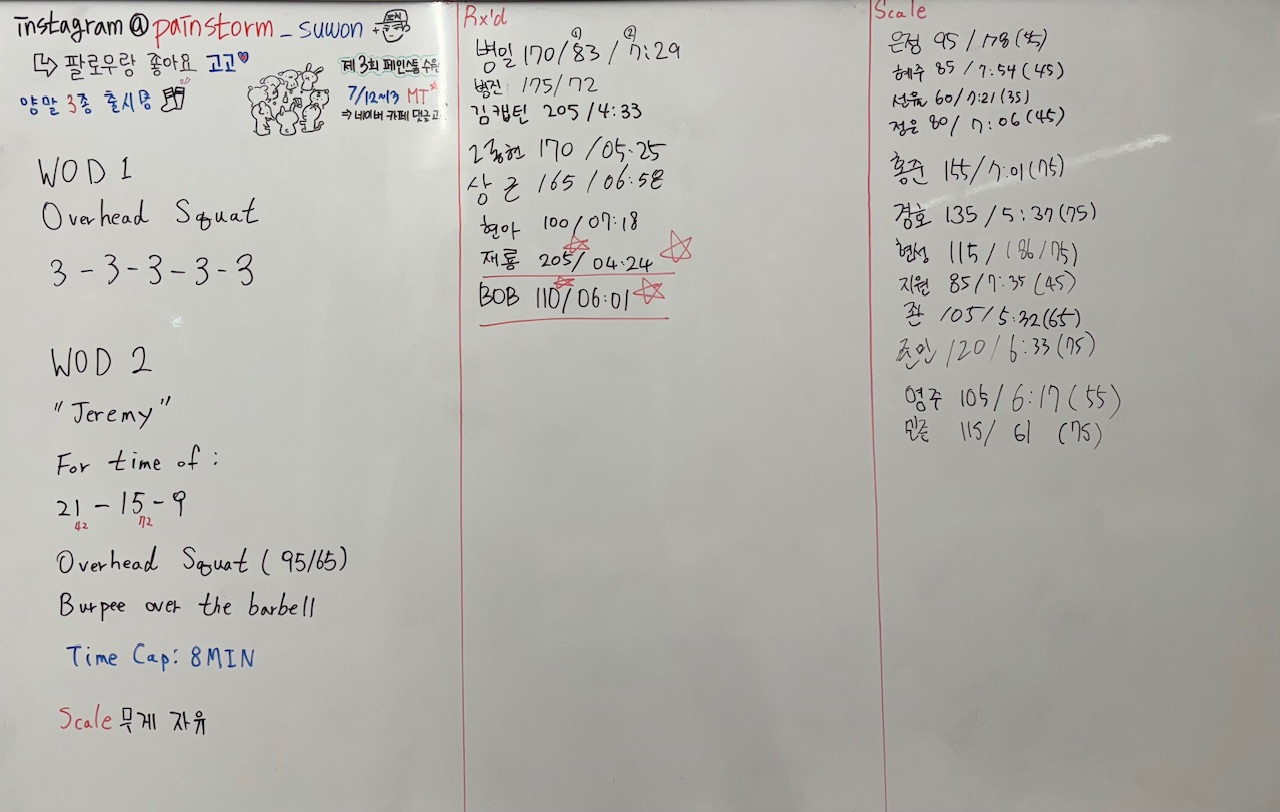 instagram @ painstorm _ suwon +
↳ 팔로우랑 좋아요 고고♥
양말 3종 출시중
제 3회 페인스톰 수원
7/12~13 MT
⇒ 네이버 카페 댓글고
WOD 1
Overhead Squat
3 - 3 - 3 - 3 - 3
WOD 2
"Jeremy"
For time of :
21 - 15 - 9
42 72
Overhead Squat ( 95/65)
Burpee over the barbell
Time Cap: 8MIN
Scale 무게 자유
Rx'd
① ②
병일 170/83 / 7:29
병진 175/72
김캡틴 205/4:33
170 /05:25
상근 165 /06:58
현아 100/07:18
재룡 205/ 04:24 ☆
BOB 110/06:01 ☆
Scale
은정 95 /78(45)
혜주 85 / 7:54 (45)
60/7:21(35)
정은 80/ 7:06(45)
홍준 155/7:01(75)
경호 135 /5:37(75)
현성 115/ (86/75)
지원 85/7:35(45)
105/5:32(65)
120/6:33(75)
영주 105/6:17(55)
민준 115/ 61 (75)